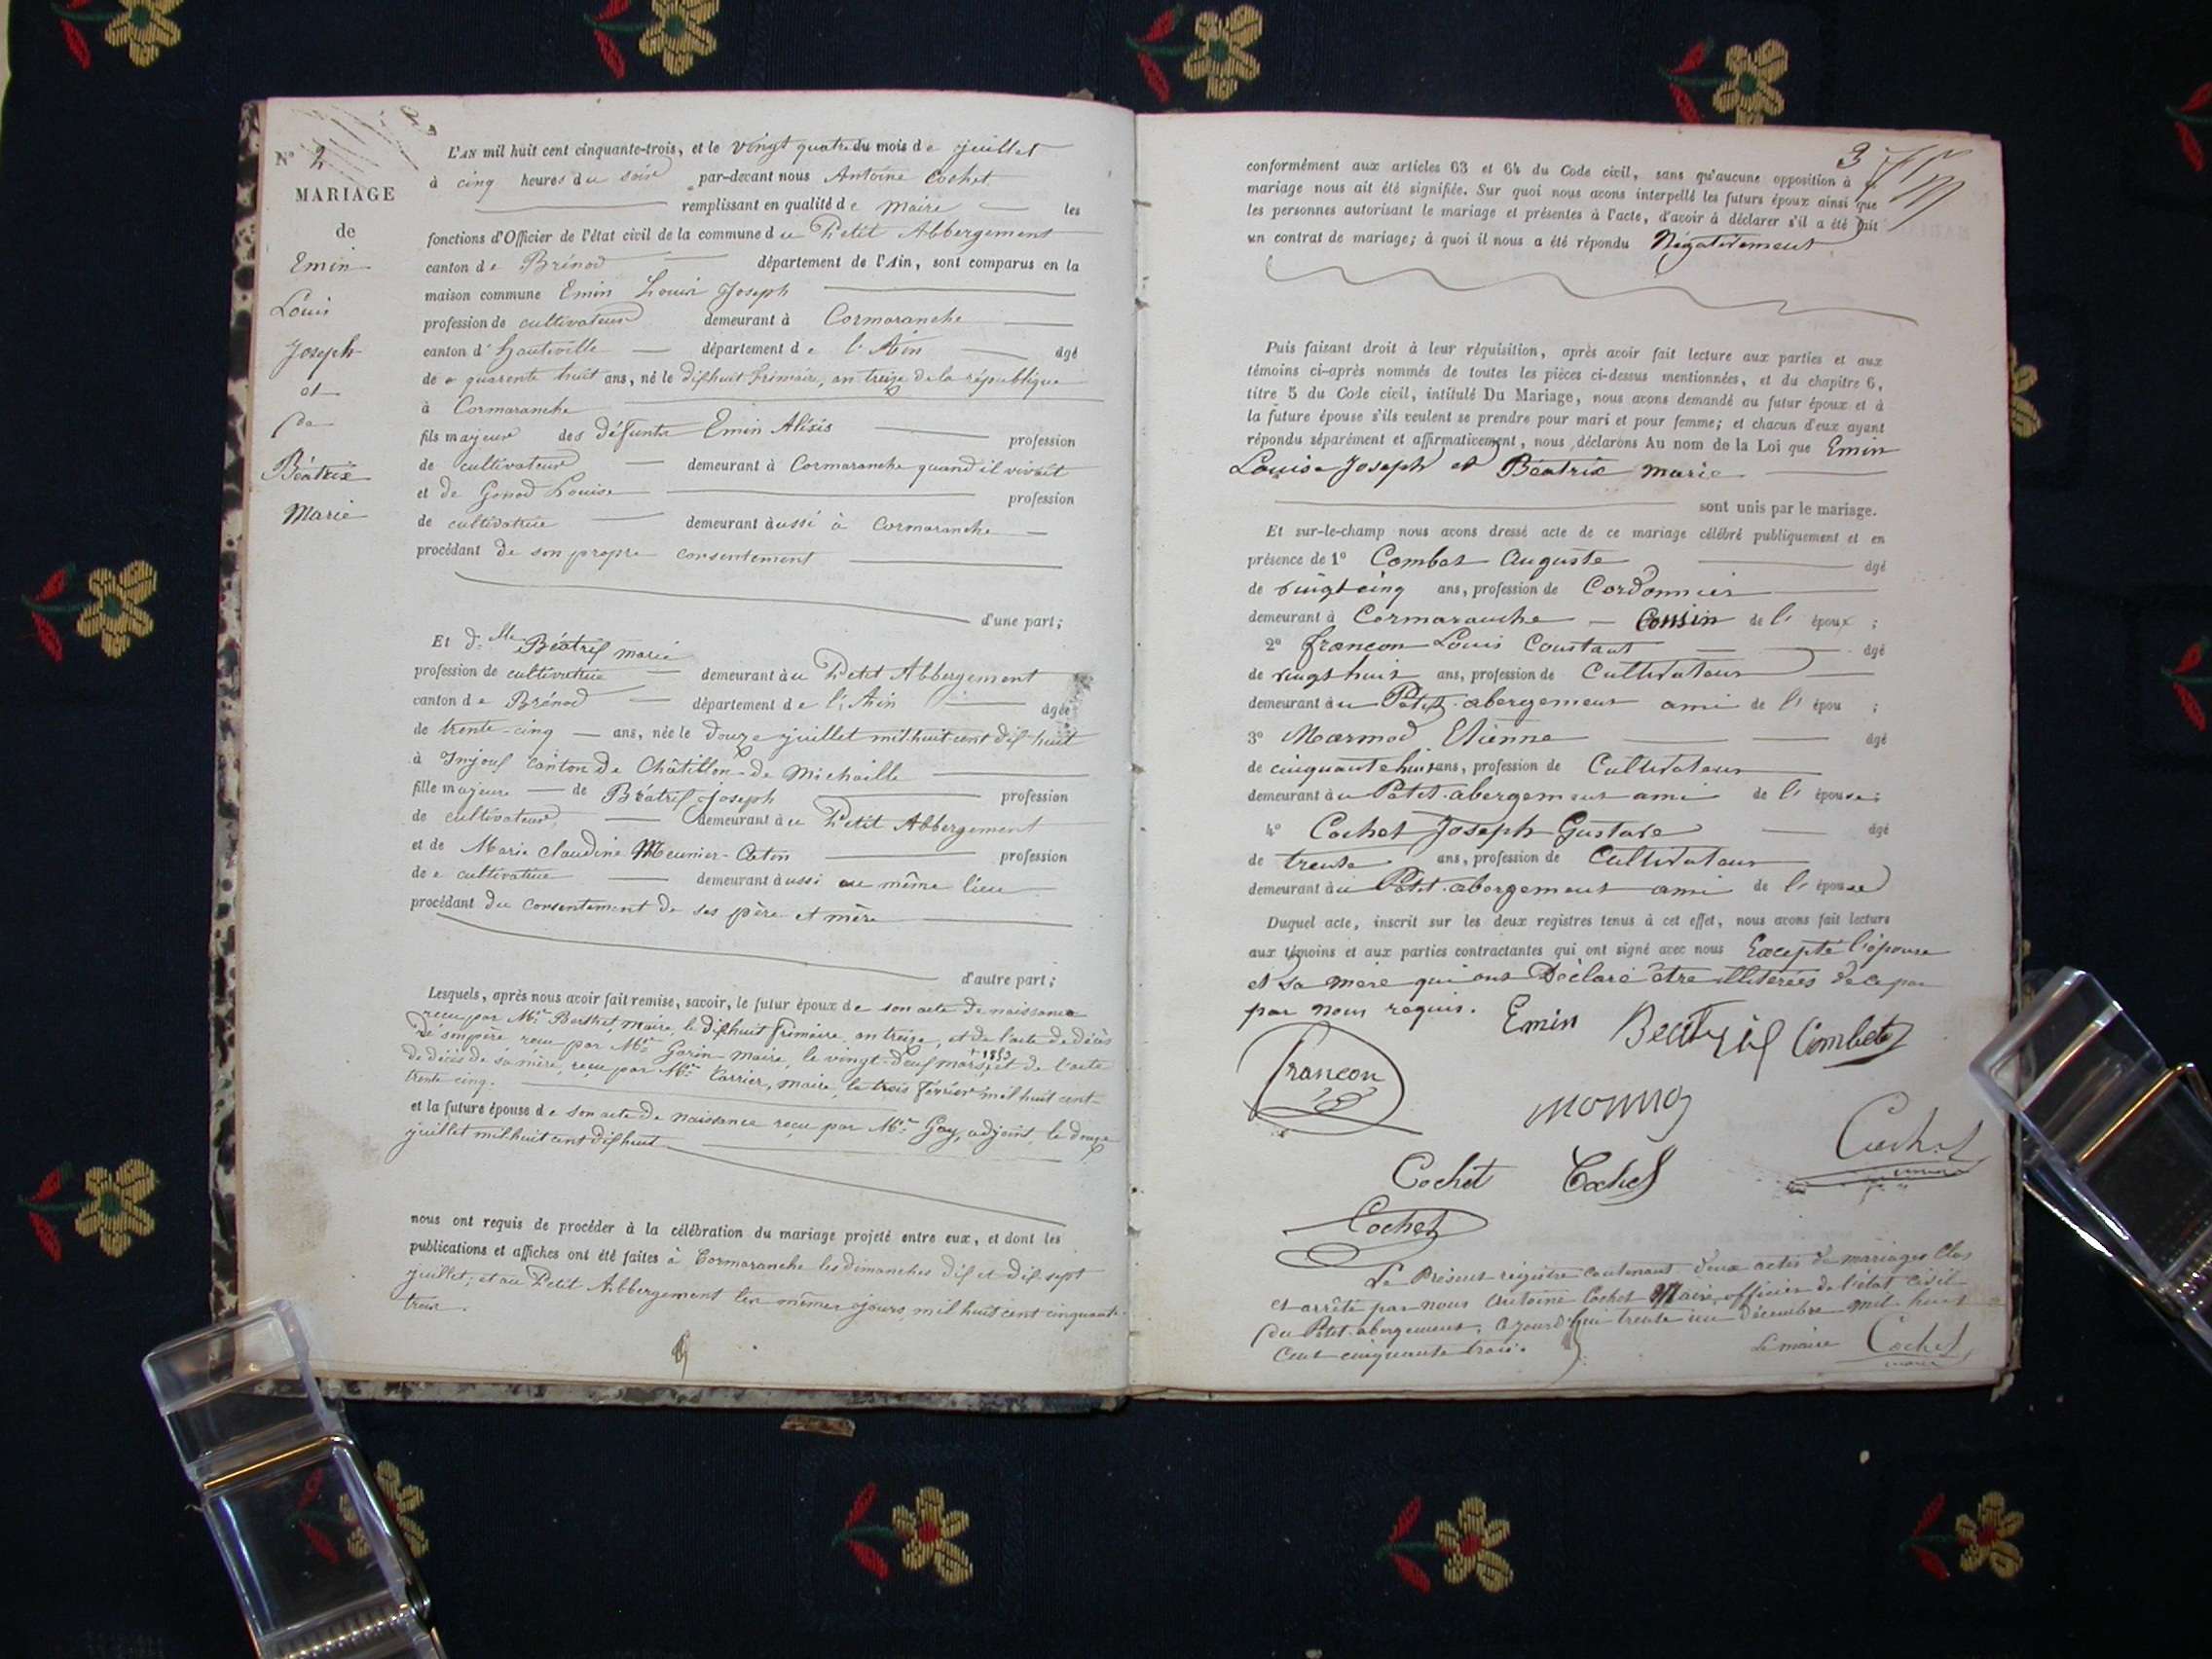 N° 2
MARIAGE
de
Emin
Louis
Joseph
et
Béatrix
Marie
L'AN mil huit cent cinquante-trois, et le vingt quatre du mois de juillet
à cinq heures du soir par-devant nous Antoine Cochet
remplissant en qualité de Maire les
fonctions d'Officier de l'état civil de la commune du Petit Abbergement
canton de Brénod département de l'Ain, sont comparus en la
maison commune Emin Louis Joseph
profession de cultivateur demeurant à Cormaranche
canton d'hauteville département de l'Ain âgé
de quarente huit ans, né le dixhuit frimaire, an treize de la république
à Cormaranche
fils majeur des défunts Emin Aléxis profession
de cultivateur demeurant à Cormaranche quand il vivait
et de Gonod Louise profession
de cultivatrice demeurant àussi à Cormaranche
procédant de son propre consentement
d'une part;
Et d.lle Béatrix marie
profession de cultivatrice demeurant àu Petit Abbergement
canton de Brénod département de l'Ain âgée
de trente-cinq ans, née le douze juillet mil huit cent dix huit
à Injoux Canton de Châtillon-de Michaille
fille majeure de Béatrix joseph profession
de cultivateur demeurant àu Petit Abbergement
et de Marie Claudine Meunier-Caton profession
de cultivatrice demeurant àussi au même lieu
procédant du consentement de ses père et mère
d'autre part;
Lesquels, après nous avoir fait remise, savoir, le futur époux de son acte de naissance
reçu par Mr Berthet, maire, le dixhuit frimaire, an treize, et de l'acte de décès
de son père reçu par Mr Garin maire, le vingt-deux mars 1853 et de l'acte
de décès de sa mère, reçu par Mr Carrier, maire, le trois février mil huit cent
trente cinq.
et la future épouse de son acte de naissance reçu par Mr Gay, adjoint, le douze
juillet mil huit cent dix huit
nous ont requis de procéder à la célébration du mariage projeté entre eux, et dont les
publications et affiches ont été faites à Cormaranche les dimanches dix et dix sept
juillet; et au Petit Abbergement les mêmes jours, mil huit cent cinquante
trois.
3
conformément aux articles 63 et 64 du Code civil, sans qu'aucune opposition à
mariage nous ait été signifiée. Sur quoi nous avons interpellé les futurs époux ainsi que
les personnes autorisant le mariage et présentes à l'acte, d'avoir à déclarer s'il a été fait
un contrat de mariage; à quoi il nous a été répondu Négativement
Puis faisant droit à leur réquisition, après avoir fait lecture aux parties et aux
témoins ci-après nommés de toutes les pièces ci-dessus mentionnées, et du chapitre 6,
titre 5 du Code civil, intitulé Du Mariage, nous avons demandé au futur époux et à
la future épouse s'ils veulent se prendre pour mari et pour femme; et chacun d'eux ayant
répondu séparément et affirmativement, nous déclarons Au nom de la Loi que Emin
Louis Joseph et Béatrix marie
sont unis par le mariage.
Et sur-le-champ nous avons dressé acte de ce mariage célébré publiquement et en
présence de 1° Combet Auguste âgé
de vingt cinq ans, profession de Cordonnier
demeurant à Cormaranche cousin de l' époux ;
2° françon Louis Constant âgé
de vingt huit ans, profession de Cultivateur
demeurant àu Petit-abergement ami de l' épou ;
3° Marmod Etienne âgé
de cinquante huit ans, profession de Cultivateur
demeurant àu Petit-abergement ami de l' épouse;
4° Cochet Joseph Gustave âgé
de trente ans, profession de Cultivateur
demeurant àu Petit-abergement ami de l' épouse
Duquel acte, inscrit sur les deux registres tenus à cet effet, nous avons fait lecture
aux témoins et aux parties contractantes qui ont signé avec nous Excepté l'épouse
et sa mère qui ont Déclaré être illitérées de ce par
par nous requis. Emin Beatrix Combet
françon
Cochet
Cochet Cochet
Cochet
Le Présent registre contenant deux actes de mariages Clos
et arrêté par nous Antoine Cochet Maire, officier de l'état civil
du Petit-abergement, ajourd'hui trente un Décembre mil huit
Cent cinquante trois.
Le maire Cochet